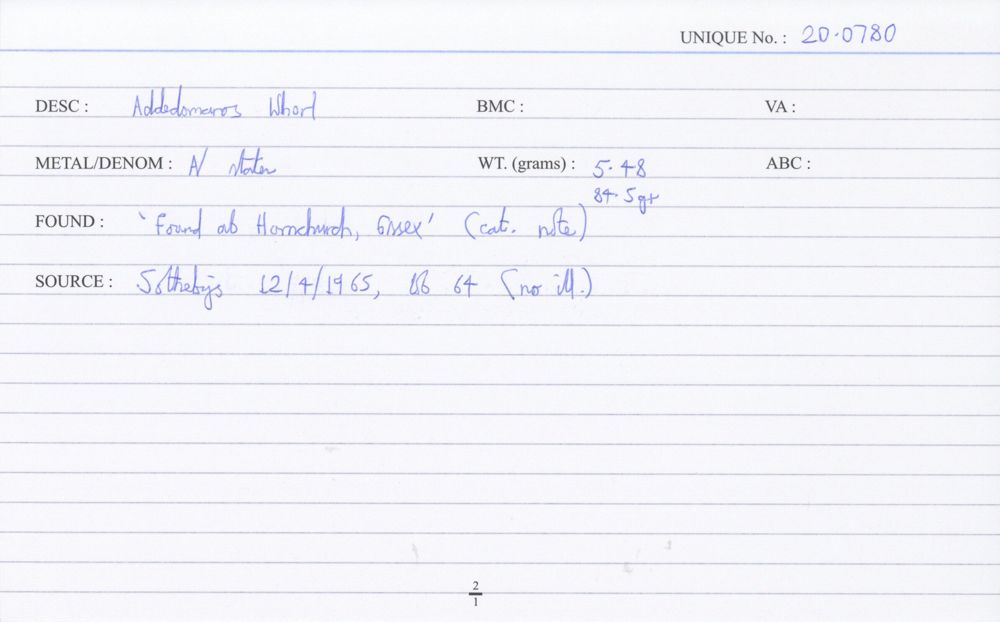 UNIQUE No. : 20·0780
DESC : Addedomaros Whorl BMC : VA :
METAL/DENOM : N stater WT. (grams) : 5.48 ABC :
84.5gr
FOUND : 'Found at Hornchurch, Essex' (cat. note)
SOURCE : Sothebys 12/4/1965, lot 64 (no ill.)
2
1